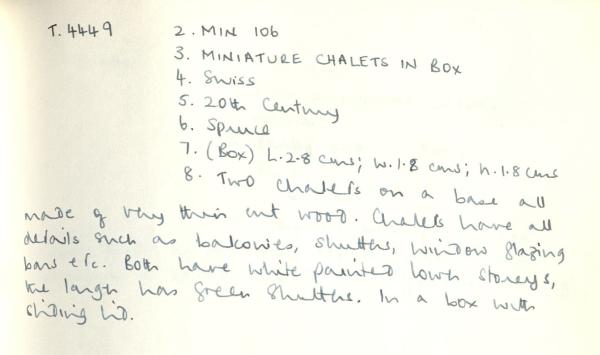 T.4449 2. MIN 106
3. MINIATURE CHALETS IN BOX
4. Swiss
5. 20th Century
6. Spruce
7. (Box) L.2.8 cms; W.1.8 cms; h.1.8 cms
8. Two chalets on a base all
made of very thin cut wood. Chalets have all
details such as balconies, shutters, window glazing
bars etc. Both have white painted lower storeys,
the larger has green shutters. In a box with
sliding lid.